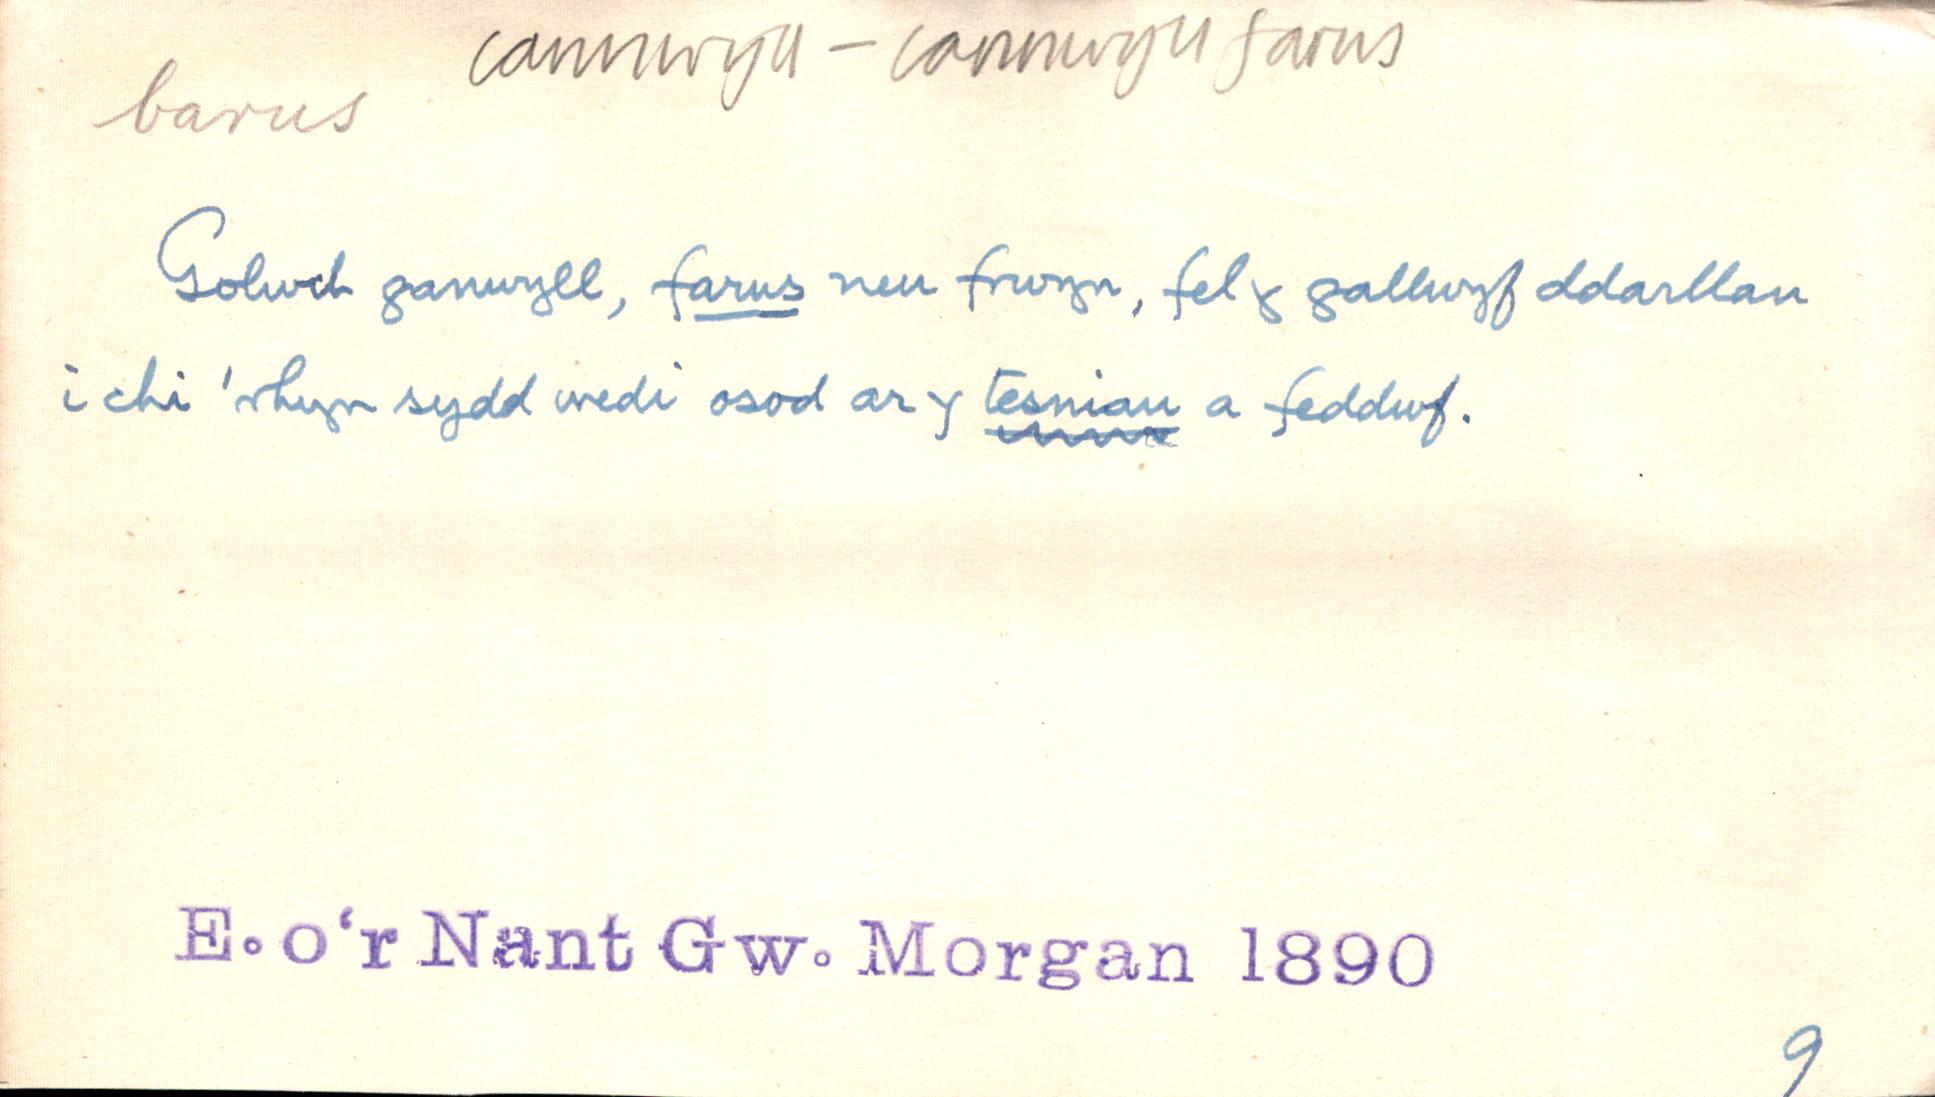 cannwyll – cannwyll farus
barus
Golwch ganwyll, farus neu frwyn, fel y gallwyf ddarllau
i chi 'rhyn sydd wedi osod ar y tesniau a feddwf.
E. o'r Nant Gw. Morgan 1890
9